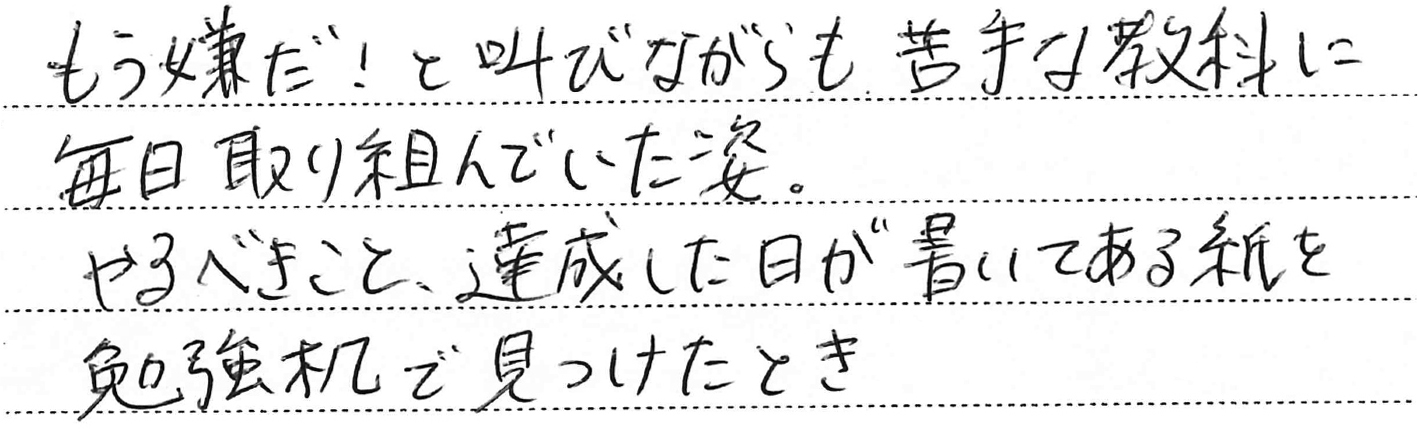 もう嫌だ!と叫びながらも、苦手な教科に
毎日取り組んでいた姿。
やるべきこと、達成した日が書いてある紙を
勉強机で見つけたとき